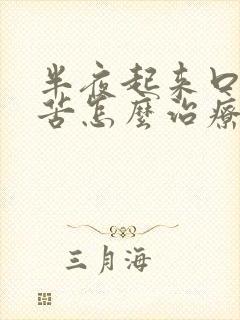 半夜起来口
苦怎麽治療
三月海